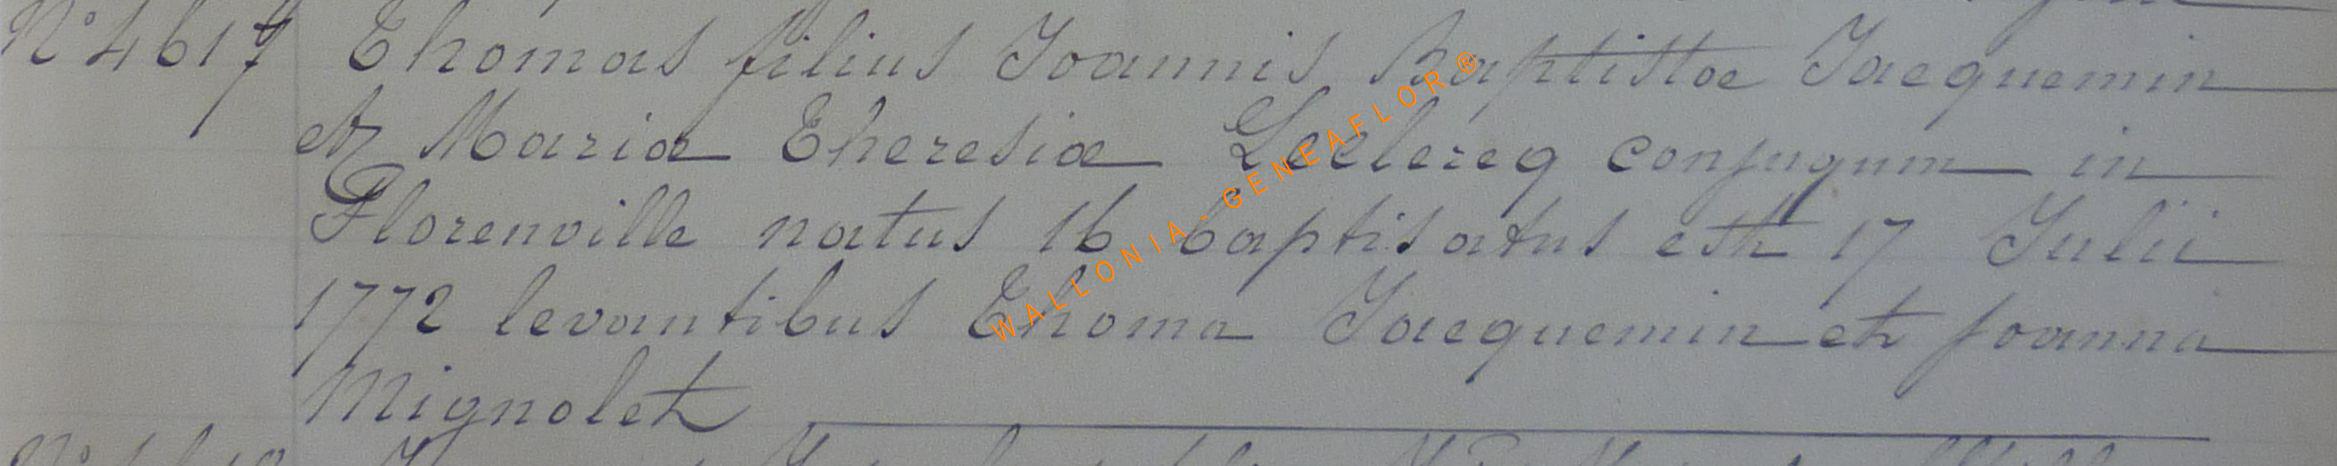 N° 4617 Thomas filius Joannis Baptistæ Jacquemin
et Mariæ Theresiæ Leclercq conjugum in
Florenville natus 16 baptisatus est 17 Julii
1772 levantibus Thoma Jacquemin et Joanna
Mignolet
WALLONIA-GENEAFLOR®